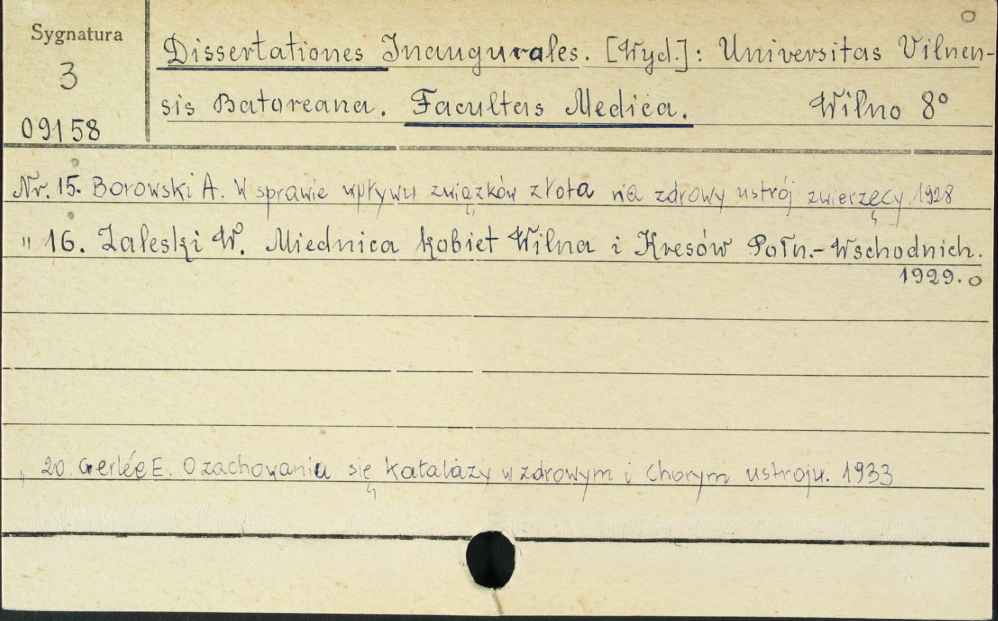 Sygnatura
3
09158
Dissertationes Inaugurales. [Wyd.]: Universitas Vilnen-
sis Batoreana. Facultas Medica. Wilno 8°
Nr. 15. Borowski A. W sprawie wpływu związków złota na zdrowy ustrój zwierzęcy 1928
" 16. Zaleski W. Miednica kobiet Wilna i Kresów Połn.-Wschodnich.
1929.
" 20. Gerlée E. O zachowaniu się katalazy w zdrowym i chorym ustroju. 1933